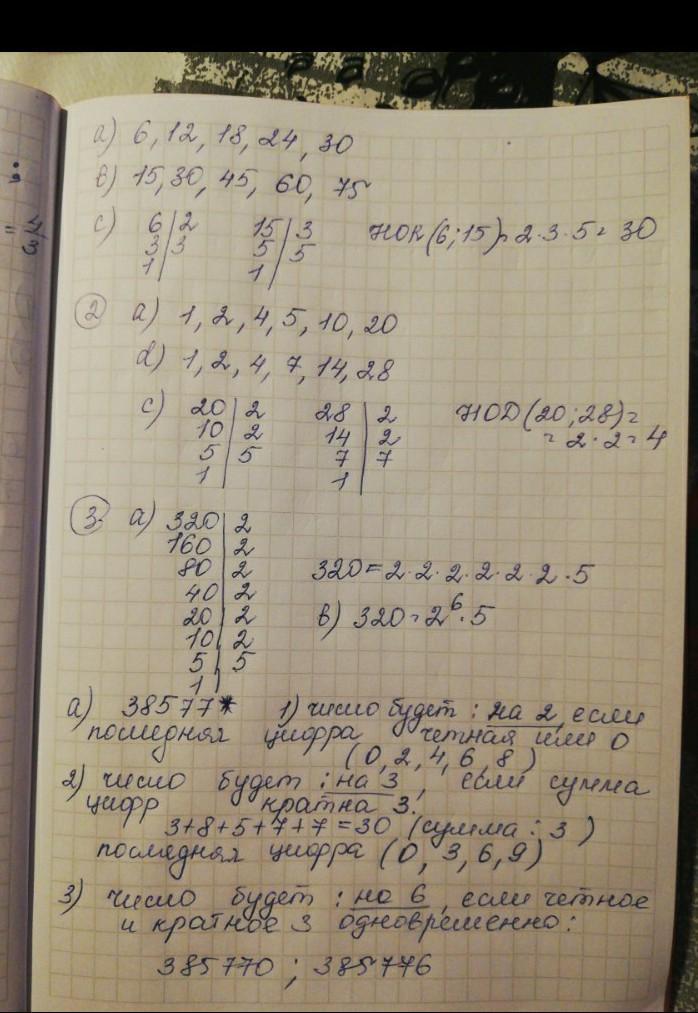 ;
= 4/3
a) 6, 12, 18, 24, 30
в) 15, 30, 45, 60, 75
c) 6|2 15|3 НОК(6;15)=2·3·5=30
3|3 5|5
1| 1|
② a) 1, 2, 4, 5, 10, 20
d) 1, 2, 4, 7, 14, 28
c) 20|2 28|2 НОД(20;28)=
10|2 14|2 =2·2=4
5|5 7|7
1| 1|
③ a) 320|2
160|2
80|2 320=2·2·2·2·2·2·5
40|2
20|2 в) 320=2⁶·5
10|2
5|5
1|
a) 38577* 1) число будет : на 2, если
последняя цифра четная или 0
(0, 2, 4, 6, 8)
2) число будет : на 3, если сумма
цифр кратна 3.
3+8+5+7+7=30 (сумма : 3)
последняя цифра (0, 3, 6, 9)
3) число будет : на 6, если четное
и кратное 3 одновременно:
385770 ; 385776